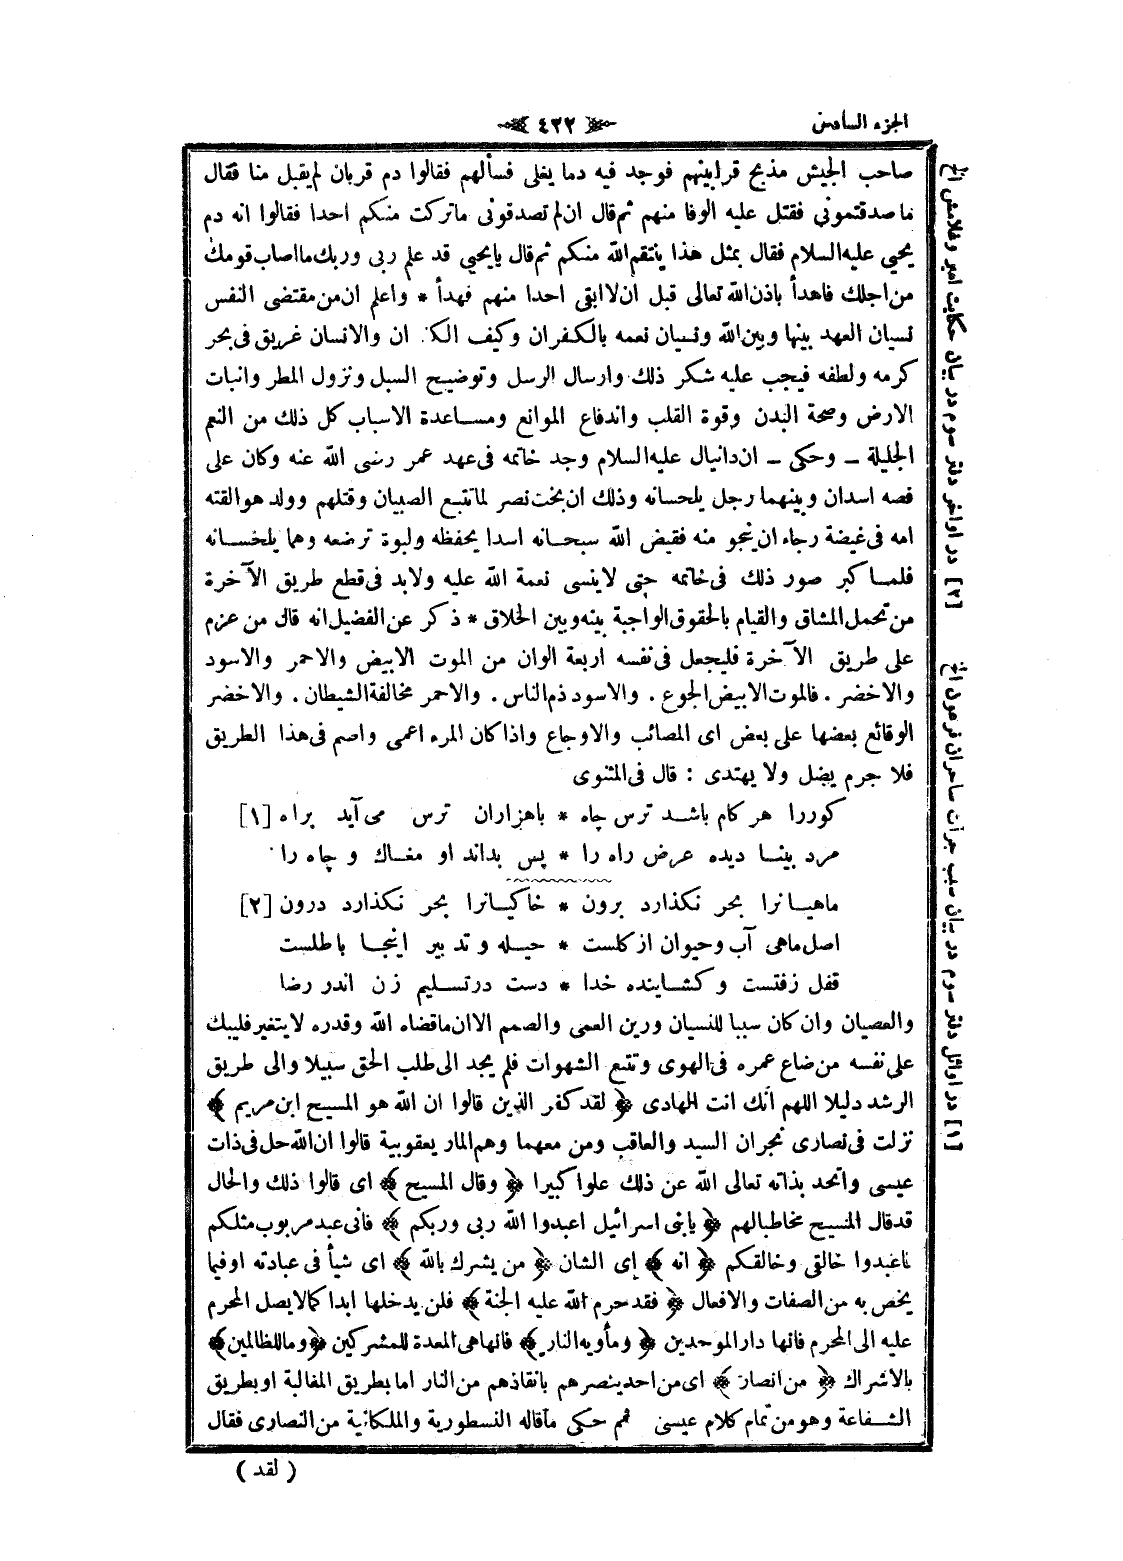 الجزء السادس
٤٢٢
صاحب الجيش مذبح قرابينهم فوجد فيه دما يغلى فسألهم فقالوا دم قربان لم يقبل منا فقال
ما صدقتمونى فقتل عليه الوفا منهم ثم قال ان لم تصدقونى ما تركت منكم احدا فقالوا انه دم
يحيى عليه السلام فقال بمثل هذا ينتقم الله منكم ثم قال يا يحيى قد علم ربى وربك ما اصاب قومك
من اجلك فاهدأ باذن الله تعالى قبل ان لا ابقى احدا منهم فهدأ * واعلم ان من مقتضى النفس
نسيان العهد بينها وبين الله ونسيان نعمه بالكفران وكيف الكفران والانسان غريق فى بحر
كرمه ولطفه فيجب عليه شكر ذلك وارسال الرسل وتوضيح السبل ونزول المطر وانبات
الارض وصحة البدن وقوة القلب واندفاع الموانع ومساعدة الاسباب كل ذلك من النعم
الجليلة ـ وحكى ـ ان دانيال عليه السلام وجد خاتمه فى عهد عمر رضى الله عنه وكان على
فصه اسدان وبينهما رجل يلحسانه وذلك ان بخت نصر لما تتبع الصبيان وقتلهم وولد هو القته
امه فى غيضة رجاء ان ينجو منه فقيض الله سبحانه اسدا يحفظه ولبوة ترضعه وهما يلحسانه
فلما كبر صور ذلك فى خاتمه حتى لا ينسى نعمة الله عليه ولا بد فى قطع طريق الآخرة
من تحمل المشاق والقيام بالحقوق الواجبة بينه وبين الخلاق * ذكر عن الفضيل انه قال من عزم
على طريق الآخرة فليجعل فى نفسه اربعة الوان من الموت الابيض والاحمر والاسود
والاخضر . فالموت الابيض الجوع . والاسود ذم الناس . والاحمر مخالفة الشيطان . والاخضر
الوقائع بعضها على بعض اى المصائب والاوجاع واذا كان المرء اعمى واصم فى هذا الطريق
فلا جرم يضل ولا يهتدى : قال فى المثنوى
كوررا هر كام باشد ترس چاه * باهزاران ترس مى آيد براه [١]
مرد بينا ديده عرض راه را * پس بداند او مغاك و چاه را
ماهيانرا بحر نكذارد برون * خاكيانرا بحر نكذارد درون [٢]
اصل ماهى آب وحيوان از كلست * حيله و تدبير اينجا باطلست
قفل زفتست و كشاينده خدا * دست در تسليم زن اندر رضا
والعصيان وان كان سببا للنسيان ورين العمى والصمم الا ان ما قضاه الله وقدره لا يتغير فليبك
على نفسه من ضاع عمره فى الهوى وتتبع الشهوات فلم يجد الى طلب الحق سبيلا والى طريق
الرشد دليلا اللهم انك انت الهادى ﴿ لقد كفر الذين قالوا ان الله هو المسيح ابن مريم ﴾
نزلت فى نصارى نجران السيد والعاقب ومن معهما وهم المار يعقوبية قالوا ان الله حل فى ذات
عيسى واتحد بذاته تعالى الله عن ذلك علوا كبيرا ﴿ وقال المسيح ﴾ اى قالوا ذلك والحال
قد قال المسيح مخاطبا لهم ﴿ يا بنى اسرائيل اعبدوا الله ربى وربكم ﴾ فانى عبد مربوب مثلكم
فاعبدوا خالقى وخالقكم ﴿ انه ﴾ اى الشان ﴿ من يشرك بالله ﴾ اى شيأ فى عبادته او فيما
يخص به من الصفات والافعال ﴿ فقد حرم الله عليه الجنة ﴾ فلن يدخلها ابدا كما لا يصل المحرم
عليه الى المحرم فانها دار الموحدين ﴿ ومأويه النار ﴾ فانها هى المعدة للمشركين ﴿ وما للظالمين ﴾
بالاشراك ﴿ من انصار ﴾ اى من احد ينصرهم بانقاذهم من النار اما بطريق المغالبة او بطريق
الشفاعة وهو من تمام كلام عيسى ثم حكى ما قاله النسطورية والملكانية من النصارى فقال
( لقد )
[١] در اوائل دفتر سوم در بيان سبب جرأت ساحران فرعون الخ
[٢] در اواخر دفتر سوم در بيان حكايت امير وغلامش الخ